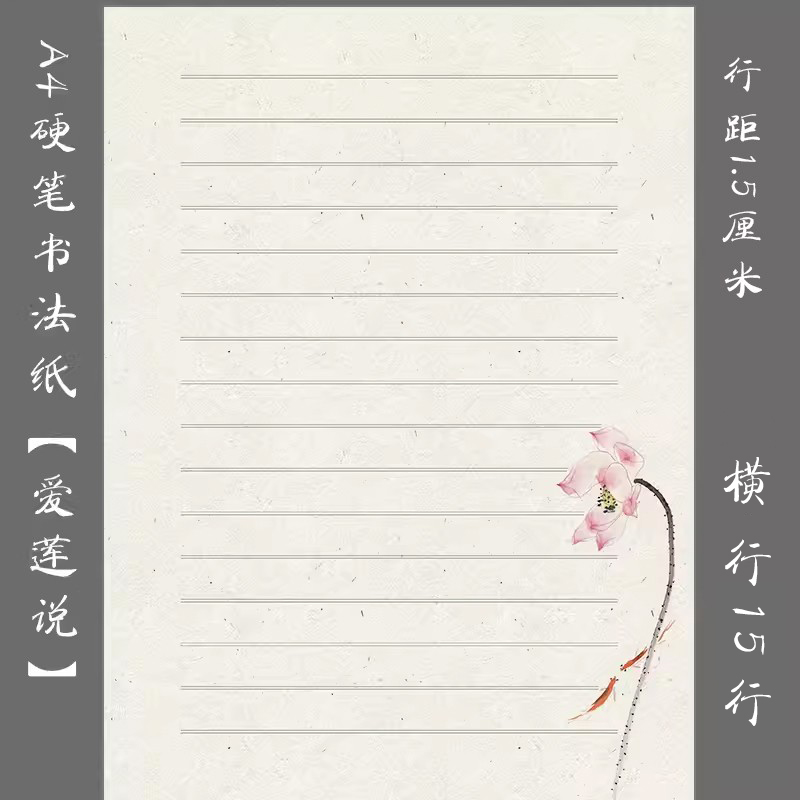 A4硬笔书法纸【爱莲说】
行距1.5厘米
横行15行